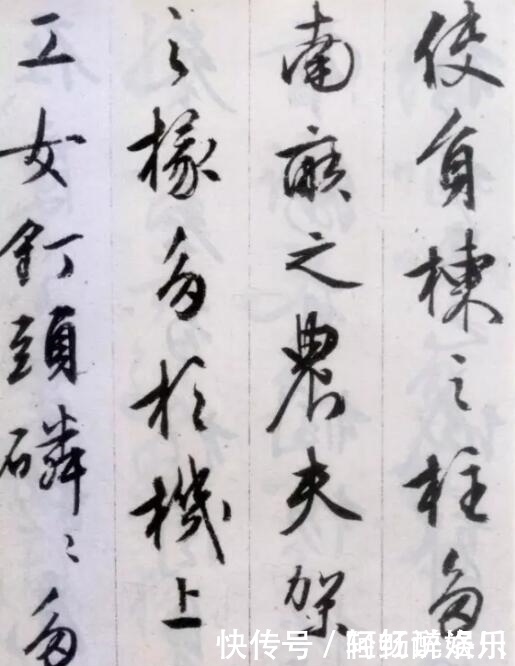 使負棟之柱多
南畝之農夫架
之椽多於機上
工女釘頭磷〻多
快传号 /